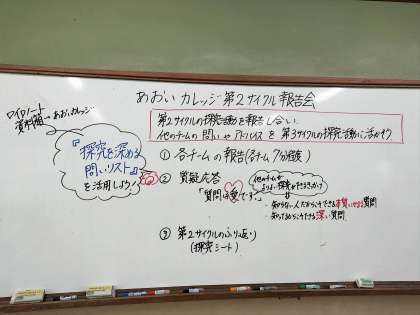 あおいカレッジ第2サイクル報告会
ロイロノート
資料箱→あおいカレッジ
第2サイクルの探究活動を報告し合い、
他のチームの問いやアドバイスを第3サイクルの探究活動に活かそう
『探究を深める
問いリスト』
を活用しよう!
① 各チームの報告(各チーム7分程度)
② 質疑応答
「質問は愛です。」
他のチームが
よりよい探究ができるきっかけ
・知らない人だからこそできる素朴な質問
・知ってるからこそできる深い質問
③ 第2サイクルのふり返り
(探究シート)